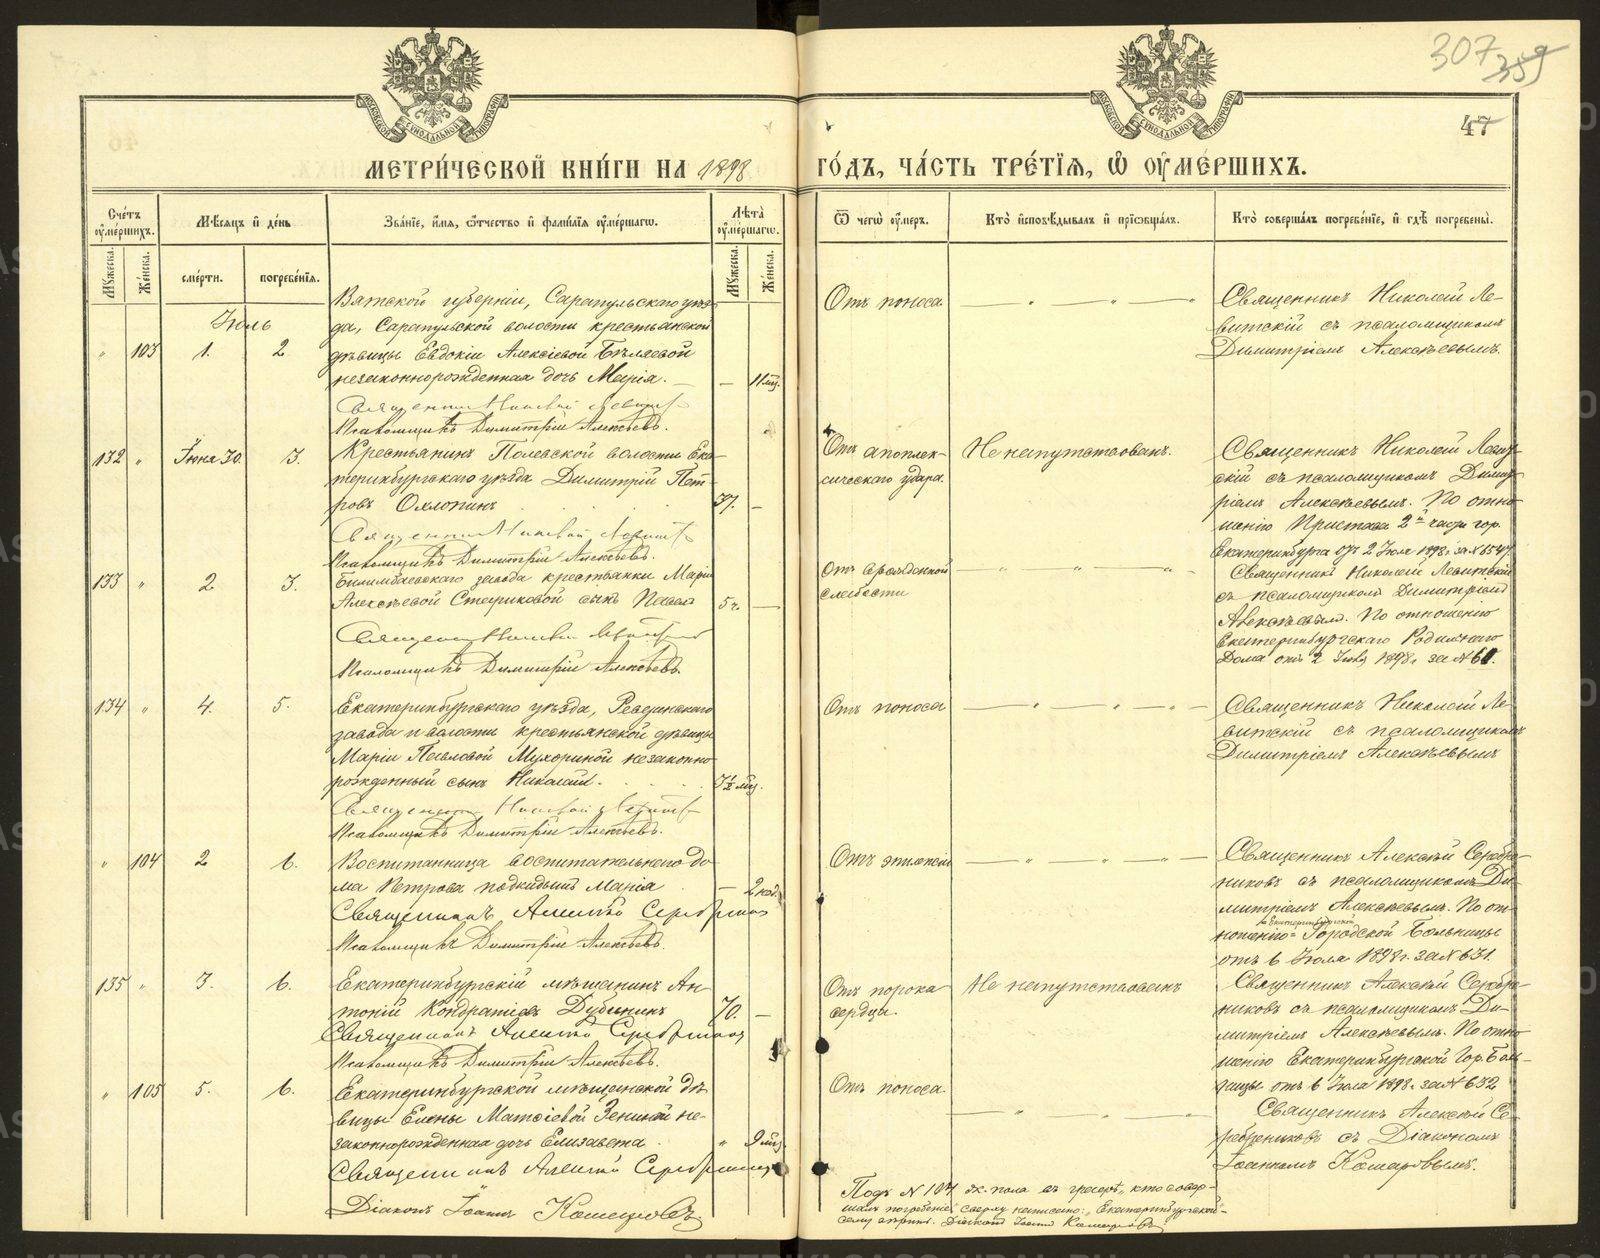 307 359
47
МЕТРИ́ЧЕСКОЙ КНИ́ГИ НА 1898 ГО́ДЪ, ЧА́СТЬ ТРЕ́ТІЯ, Ѡ҆ ОУ҆МЕ́РШИХЪ.
Сче́тъ оу҆ме́ршихъ.
Мꙋ́жеска.
Же́нска.
Мѣ́сяцъ и҆ де́нь
сме́рти.
погребе́нїя.
Зва́нїе, и҆́мя, ѻ҆́тчество и҆ фамилїя оу҆ме́ршагѡ.
Лѣта̀ оу҆ме́ршагѡ.
Мꙋ́жеска.
Же́нска.
Ѿ чегѡ̀ оу҆́меръ.
Кто̀ и҆сповѣ́дывалъ и҆ прїѡбща́лъ.
Кто̀ соверша́лъ погребе́нїе, и҆ гдѣ̀ погребены̀.
Іюль
" 103 1. 2
Вятской губерніи, Сарапульскаго уѣз-
да, Сарапульской волости крестьянской
дѣвицы Евдокіи Алексіевой Бѣляевой
незаконнорожденная дочь Марія. — — 11 мц.
Священникъ Николай Левитскій
Псаломщикъ Димитрій Алексѣевъ.
Отъ поноса.
Священникъ Николай Ле-
витскій съ псаломщикомъ
Димитріемъ Алексѣевымъ.
132 " Іюня 30. 3.
Крестьянинъ Полевской волости Ека-
теринбургскаго уѣзда Димитрій Пет-
ровъ 37. —
Священникъ Николай Левитскій
Псаломщикъ Димитрій Алексѣевъ.
Отъ апоплек-
сическаго удара.
Не напутствованъ.
Священникъ Николай Левит-
скій съ псаломщикомъ Димит-
ріемъ Алексѣевымъ. По отно-
шенію Пристава 2й части гор.
Екатеринбурга отъ 2 Іюля 1898 г. за № 6547.
133 " 2 3.
Билимбаевскаго завода крестьянки Маріи
Алексѣевой сынъ Павелъ 5 ч. —
Священникъ Николай Левитскій
Псаломщикъ Димитрій Алексѣевъ.
Отъ врожденной
слабости
Священникъ Николай Левитскій
съ псаломщикомъ Димитріемъ
Алексѣевымъ. По отношенію
Екатеринбургскаго Родильнаго
Дома отъ 2 Іюля 1898 г. за №
134 " 4. 5.
Екатеринбургскаго уѣзда, Ревдинскаго
завода и волости крестьянской дѣвицы
Маріи Павловой Мухориной незаконно-
рожденный сынъ Николай. 3½ мц.
Священникъ Николай Левитскій
Псаломщикъ Димитрій Алексѣевъ.
Отъ поноса
Священникъ Николай Ле-
витскій съ псаломщикомъ
Димитріемъ Алексѣевымъ
" 104 2 6.
Воспитанница воспитательнаго до-
ма Петрова подкидышъ Марія — 2 нед.
Священникъ Алексѣй Серебрениковъ
Псаломщикъ Димитрій Алексѣевъ.
Отъ эпилепсіи
Священникъ Алексѣй Серебре-
никовъ съ псаломщикомъ Ди-
митріемъ Алексѣевымъ. По от-
Екатеринбургской
ношенію Городской Больницы
отъ 6 Іюля 1898 г. за № 631.
135 " 3. 6.
Екатеринбургскій мѣщанинъ Ан-
тоній Кондратіевъ Дубининъ 70. —
Священникъ Алексѣй Серебрениковъ
Псаломщикъ Димитрій Алексѣевъ.
Отъ порока
сердца.
Не напутствованъ
Священникъ Алексѣй Серебре-
никовъ съ псаломщикомъ Ди-
митріемъ Алексѣевымъ. По отно-
шенію Екатеринбургской Гор. Боль-
ницы отъ 6 Іюля 1898 г. за № 632
" 105 5. 6.
Екатеринбургской мѣщанской дѣ-
вицы Елены Матѳіевой Зениной не-
законнорожденная дочь Елизавета. " 9 мц.
Священникъ Алексѣй Серебрениковъ
Діаконъ Іоаннъ Комаровъ
Отъ поноса.
Священникъ Алексѣй Се-
ребрениковъ съ Діакономъ
Іоанномъ Комаровымъ.
Подъ № 104 ж. пола въ графѣ „кто совер-
шалъ погребеніе сверху написано: „Екатеринбургской"-
сему вѣрить. Діаконъ Іоаннъ Комаровъ